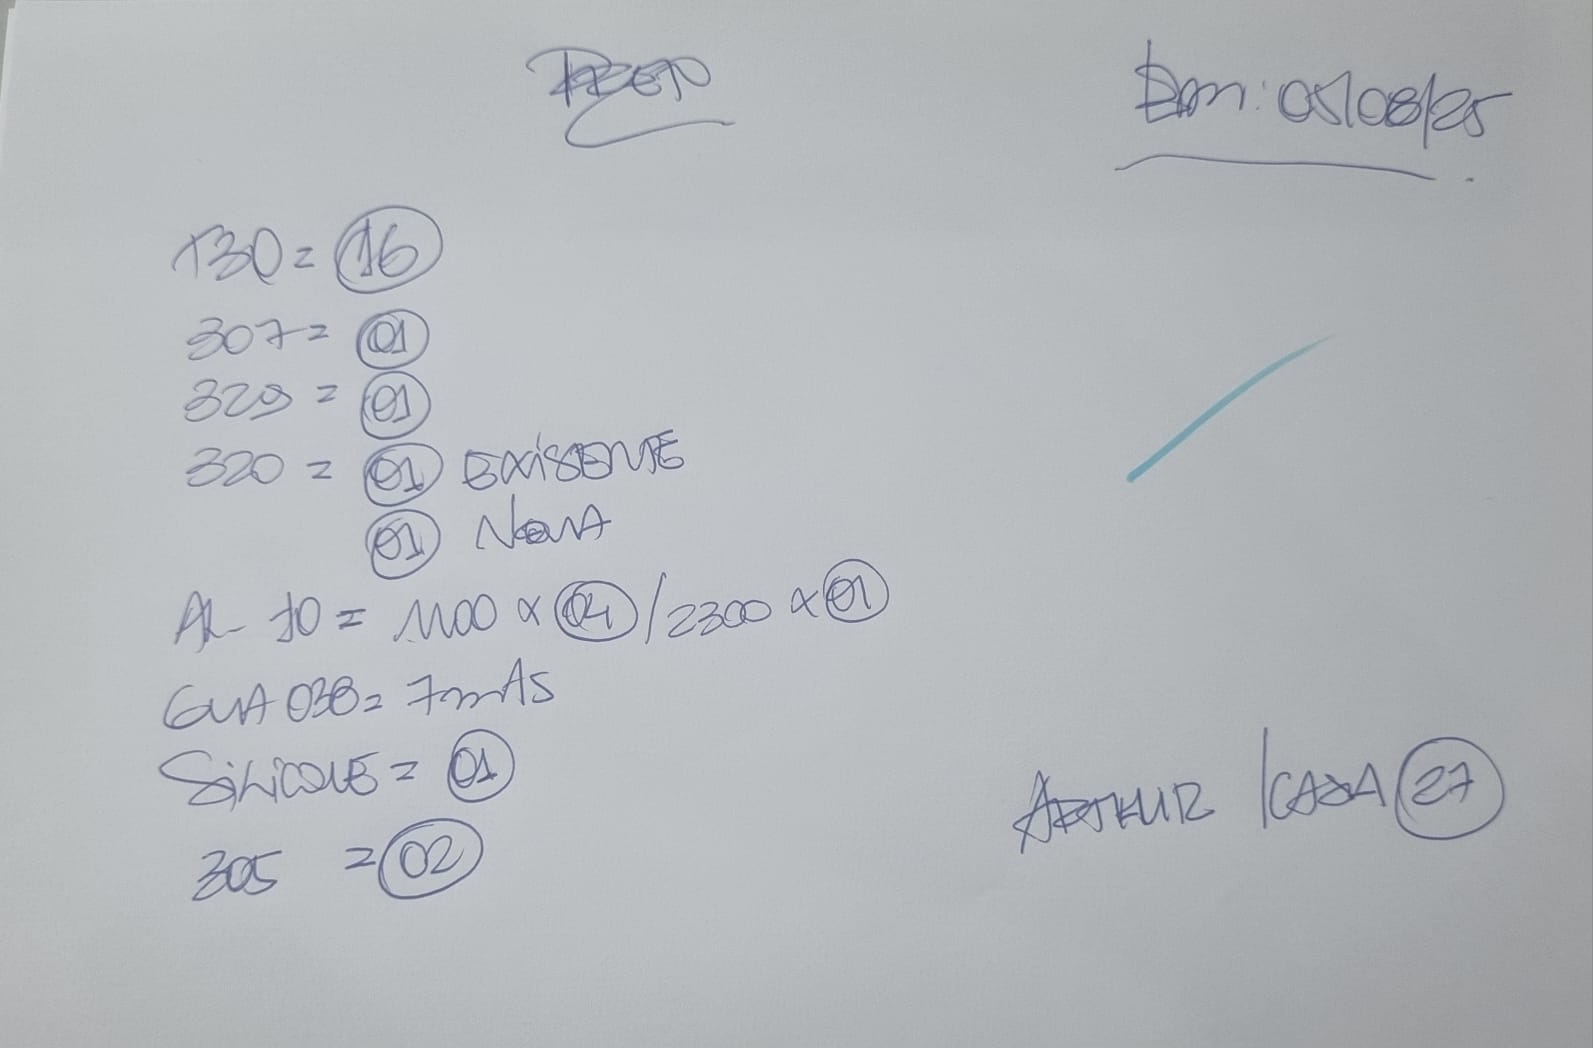 05/08/25
130 = 16
307 = 01
329 = 01
320 = 01 EXISTENTE
01 NOVA
AL 10 = 1100 x 04 / 2300 x 01
GUA 038 =
SILICONE = 01
305 = 02
ARTHUR / CASA 27